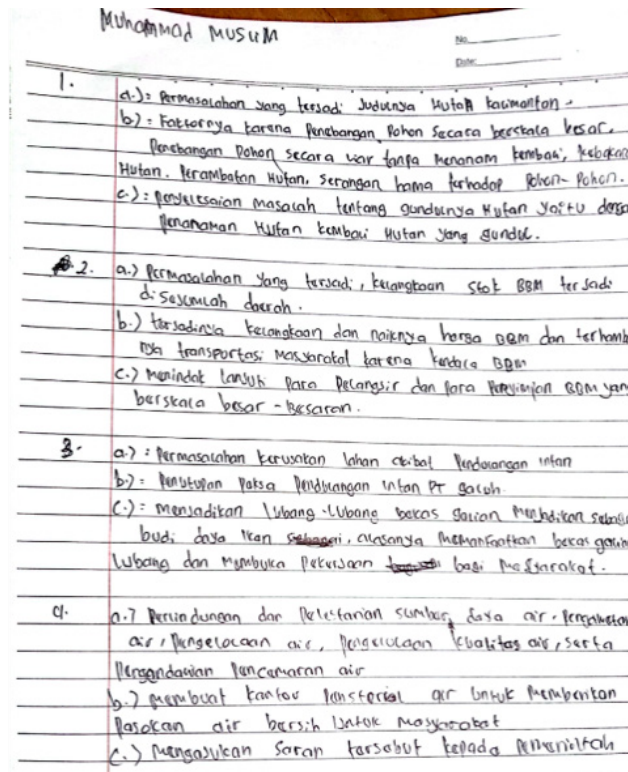 Muhammad MUSUM
No.
Date:
1. a.): Permasalahan yang terjadi Judulnya Hutan kalimantan.
b): Faktornya karena Penebangan Pohon Secara berskala besar.
Penebangan Pohon secara liar tanpa menanam kembali, kebakara
Hutan. Perambatan Hutan, Serangan hama terhadap Pohon-Pohon.
c): penyelesaian masalah tentang gundulnya Hutan yaitu denga
Penanaman Hutan kembali Hutan yang gundul.
2. a.) Permasalahan yang terjadi, kelangkaan Stok BBM terjadi
di sejumlah daerah.
b.) terjadinya kelangkaan dan naiknya harga BBM dan terhamb
nya transportasi Masyarakat karena kendala BBM
c.) menindak lanjuti Para Pelangsir dan Para Penyimpan BBM yan
berskala besar-Besaran.
3. a.): Permasalahan kerusakan lahan akibat Pendulangan intan
b.): Penutupan Paksa Pendulangan intan PT galuh.
c.): menjadikan lubang-lubang bekas galian Menjadikan sebaga
budi daya ikan, alasanya Memanfaatkan bekas galia
lubang dan Membuka Pekerjaan bagi Masyarakat.
4. a.) Perlindungan dan Pelestarian sumber daya air. Pengawetan
air, Pengelolaan air, Pengelolaan kualitas air, serta
Pengendalian Pencemaran air
b.) membuat kantor air Untuk Memberikan
Pasokan air bersih Untuk masyarakat
c.) Mengajukan Saran tersebut kepada Pemerintah